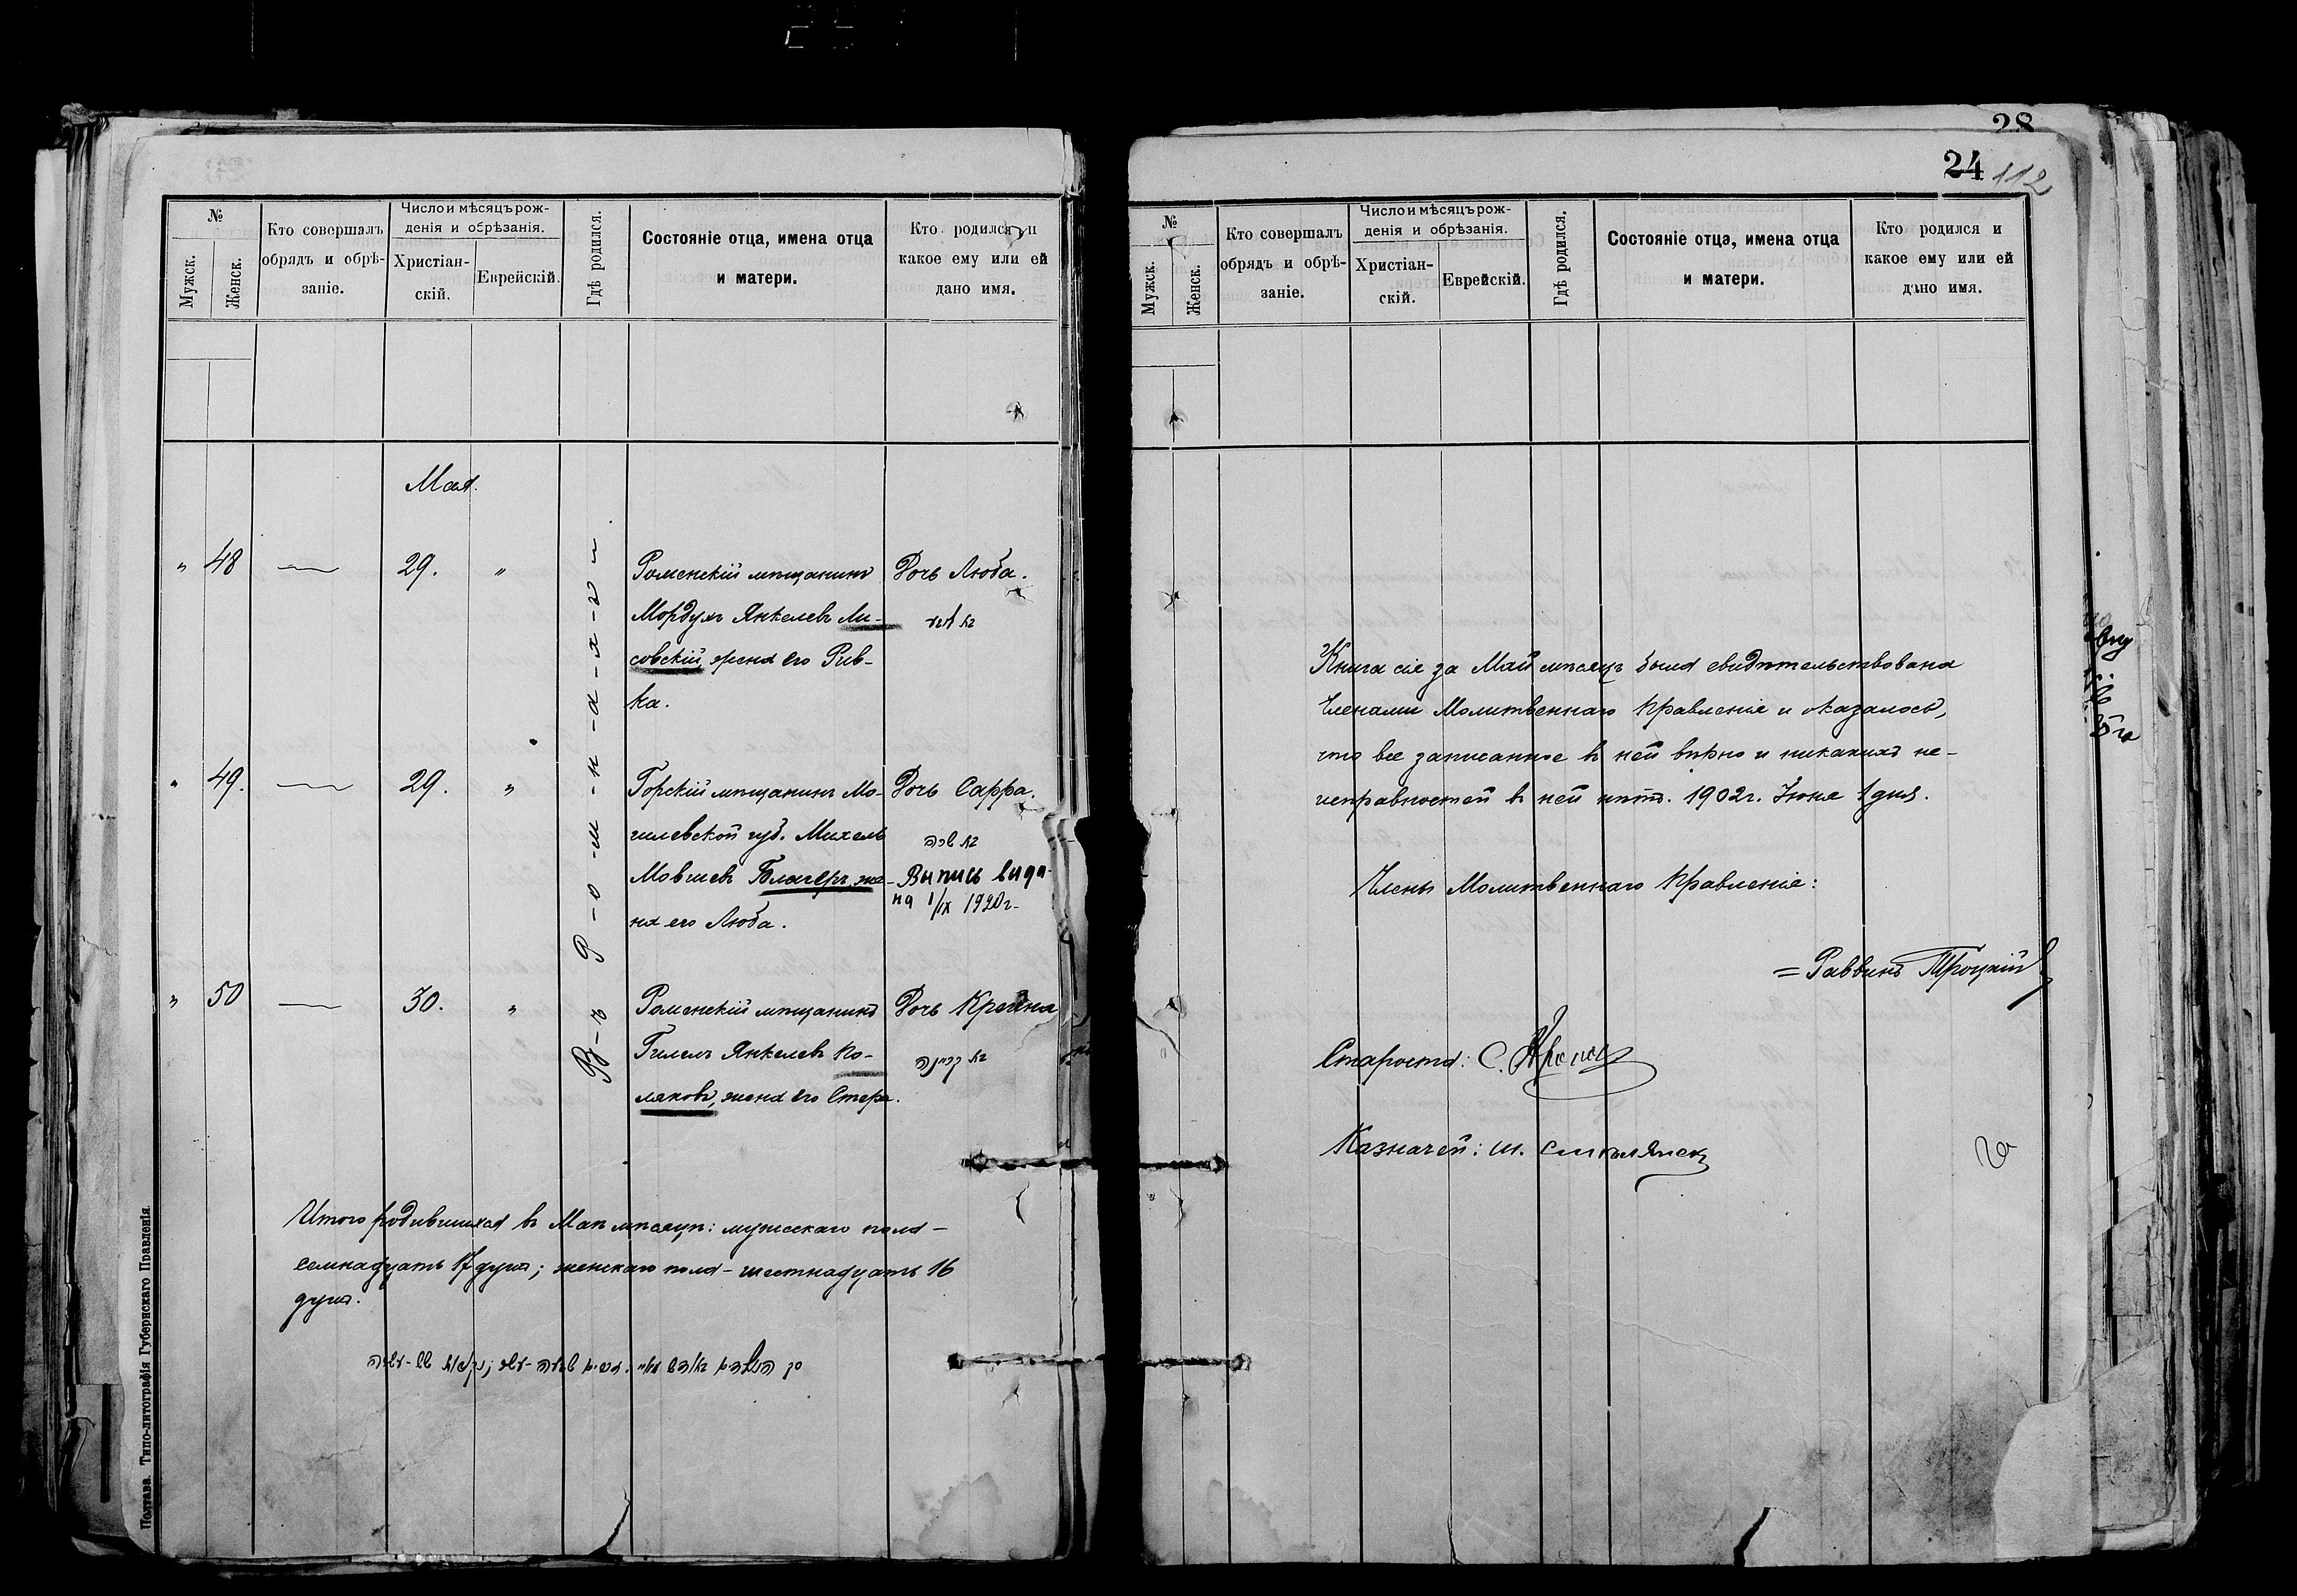 №
Мужск.
Женск.
Кто совершалъ
обрядъ и обрѣ-
заніе.
Число и мѣсяцъ рож-
денія и обрѣзанія.
Христіан-
скій.
Еврейскій.
Гдѣ родился.
Состояніе отца, имена отца
и матери.
Кто родился и
какое ему или ей
дано имя.
Мая.
Въ Р-о-м-н-а-х-ъ
" 48 — 29. " Роменскій мѣщанинъ
Мордухъ Янкелевъ Ли-
совскій, жена его Рив-
ка.
Дочь Люба.
" 49. — 29. " Горскій мѣщанинъ Мо-
гилевской губ. Михель
Мовшевъ же-
на его Люба.
Дочь Сарра.
בת שרה
Выпись выда-
на 1/IX 1920г.
" 50 — 30. " Роменскій мѣщанинъ
Гилель Янкелевъ По-
ляковъ, жена его Стера.
Дочь Крейна
בת קריינה
Итого родившихся въ Маѣ мѣсяцѣ: мужескаго пола –
семнадцать 17 душъ; женскаго пола – шестнадцать 16
душъ.
Полтава. Типо-литографія Губернскаго Правленія.
28
24 112
№
Мужск.
Женск.
Кто совершалъ
обрядъ и обрѣ-
заніе.
Число и мѣсяцъ рож-
денія и обрѣзанія.
Христіан-
скій.
Еврейскій.
Гдѣ родился.
Состояніе отца, имена отца
и матери.
Кто родился и
какое ему или ей
дано имя.
Книга сія за Май мѣсяцъ была свидѣтельствована
Членами Молитвеннаго Правленія и оказалось,
что все записанное въ ней вѣрно и никакихъ не-
исправностей въ ней нѣтъ. 1902г. Іюня 1 дня.
Члены Молитвеннаго Правленія:
= Раввинъ Троцкій
Староста: С.
Казначей: Ш.